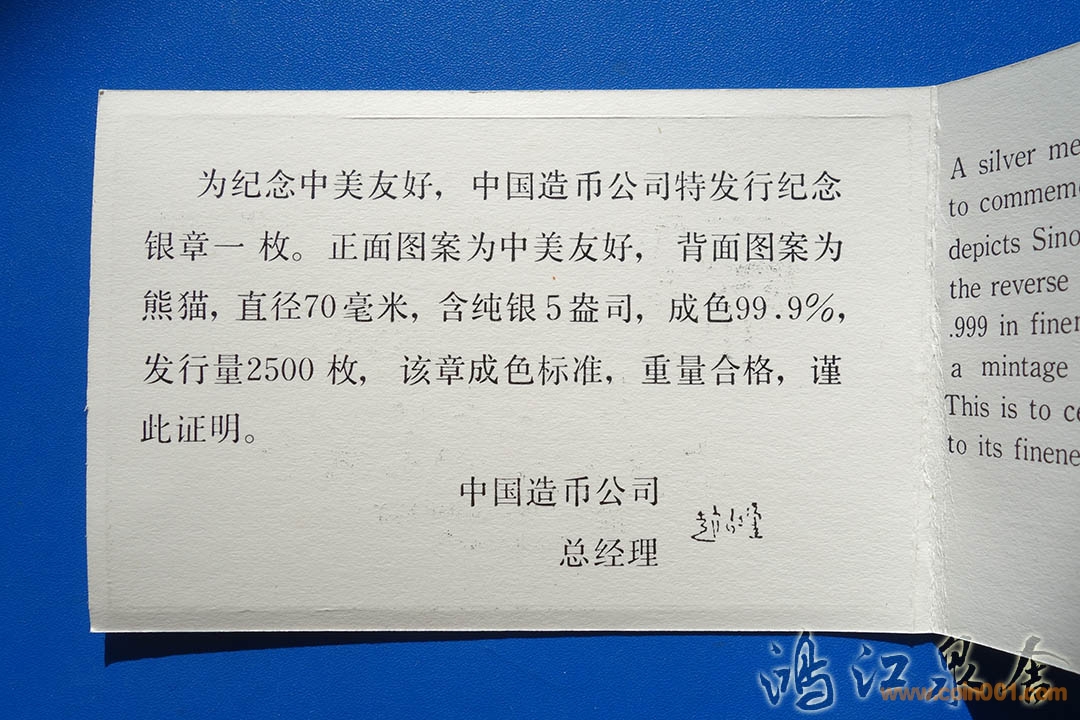 为纪念中美友好，中国造币公司特发行纪念
银章一枚。正面图案为中美友好，背面图案为
熊猫，直径70毫米，含纯银5盎司，成色99.9%，
发行量2500枚，该章成色标准，重量合格，谨
此证明。
中国造币公司
总经理
A silver me
to commem
depicts Sino
the reverse
.999 in finen
a mintage
This is to ce
to its finene
鸿江泉店
www.cpin001.com